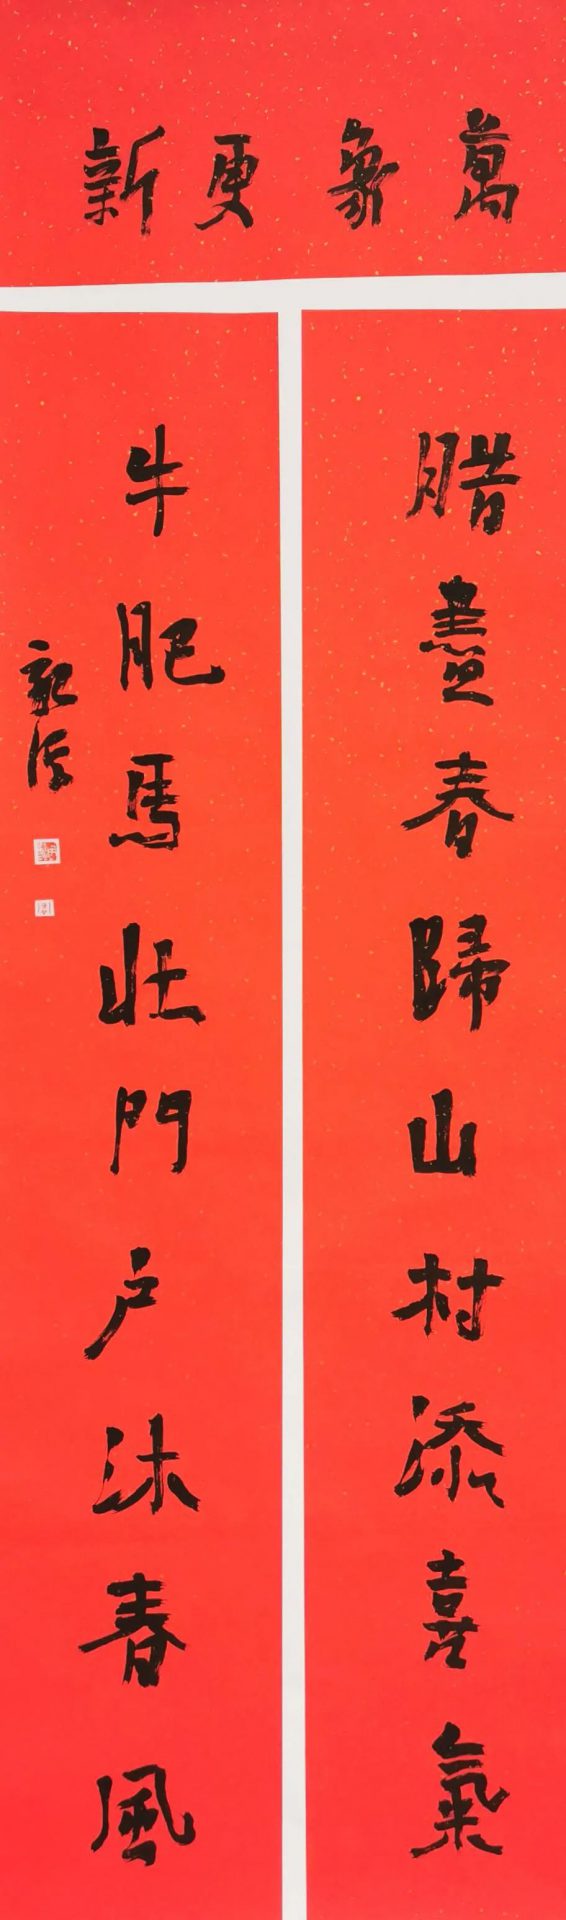 萬象更新
腊盡春歸山村添喜氣
牛肥馬壯門户沐春風